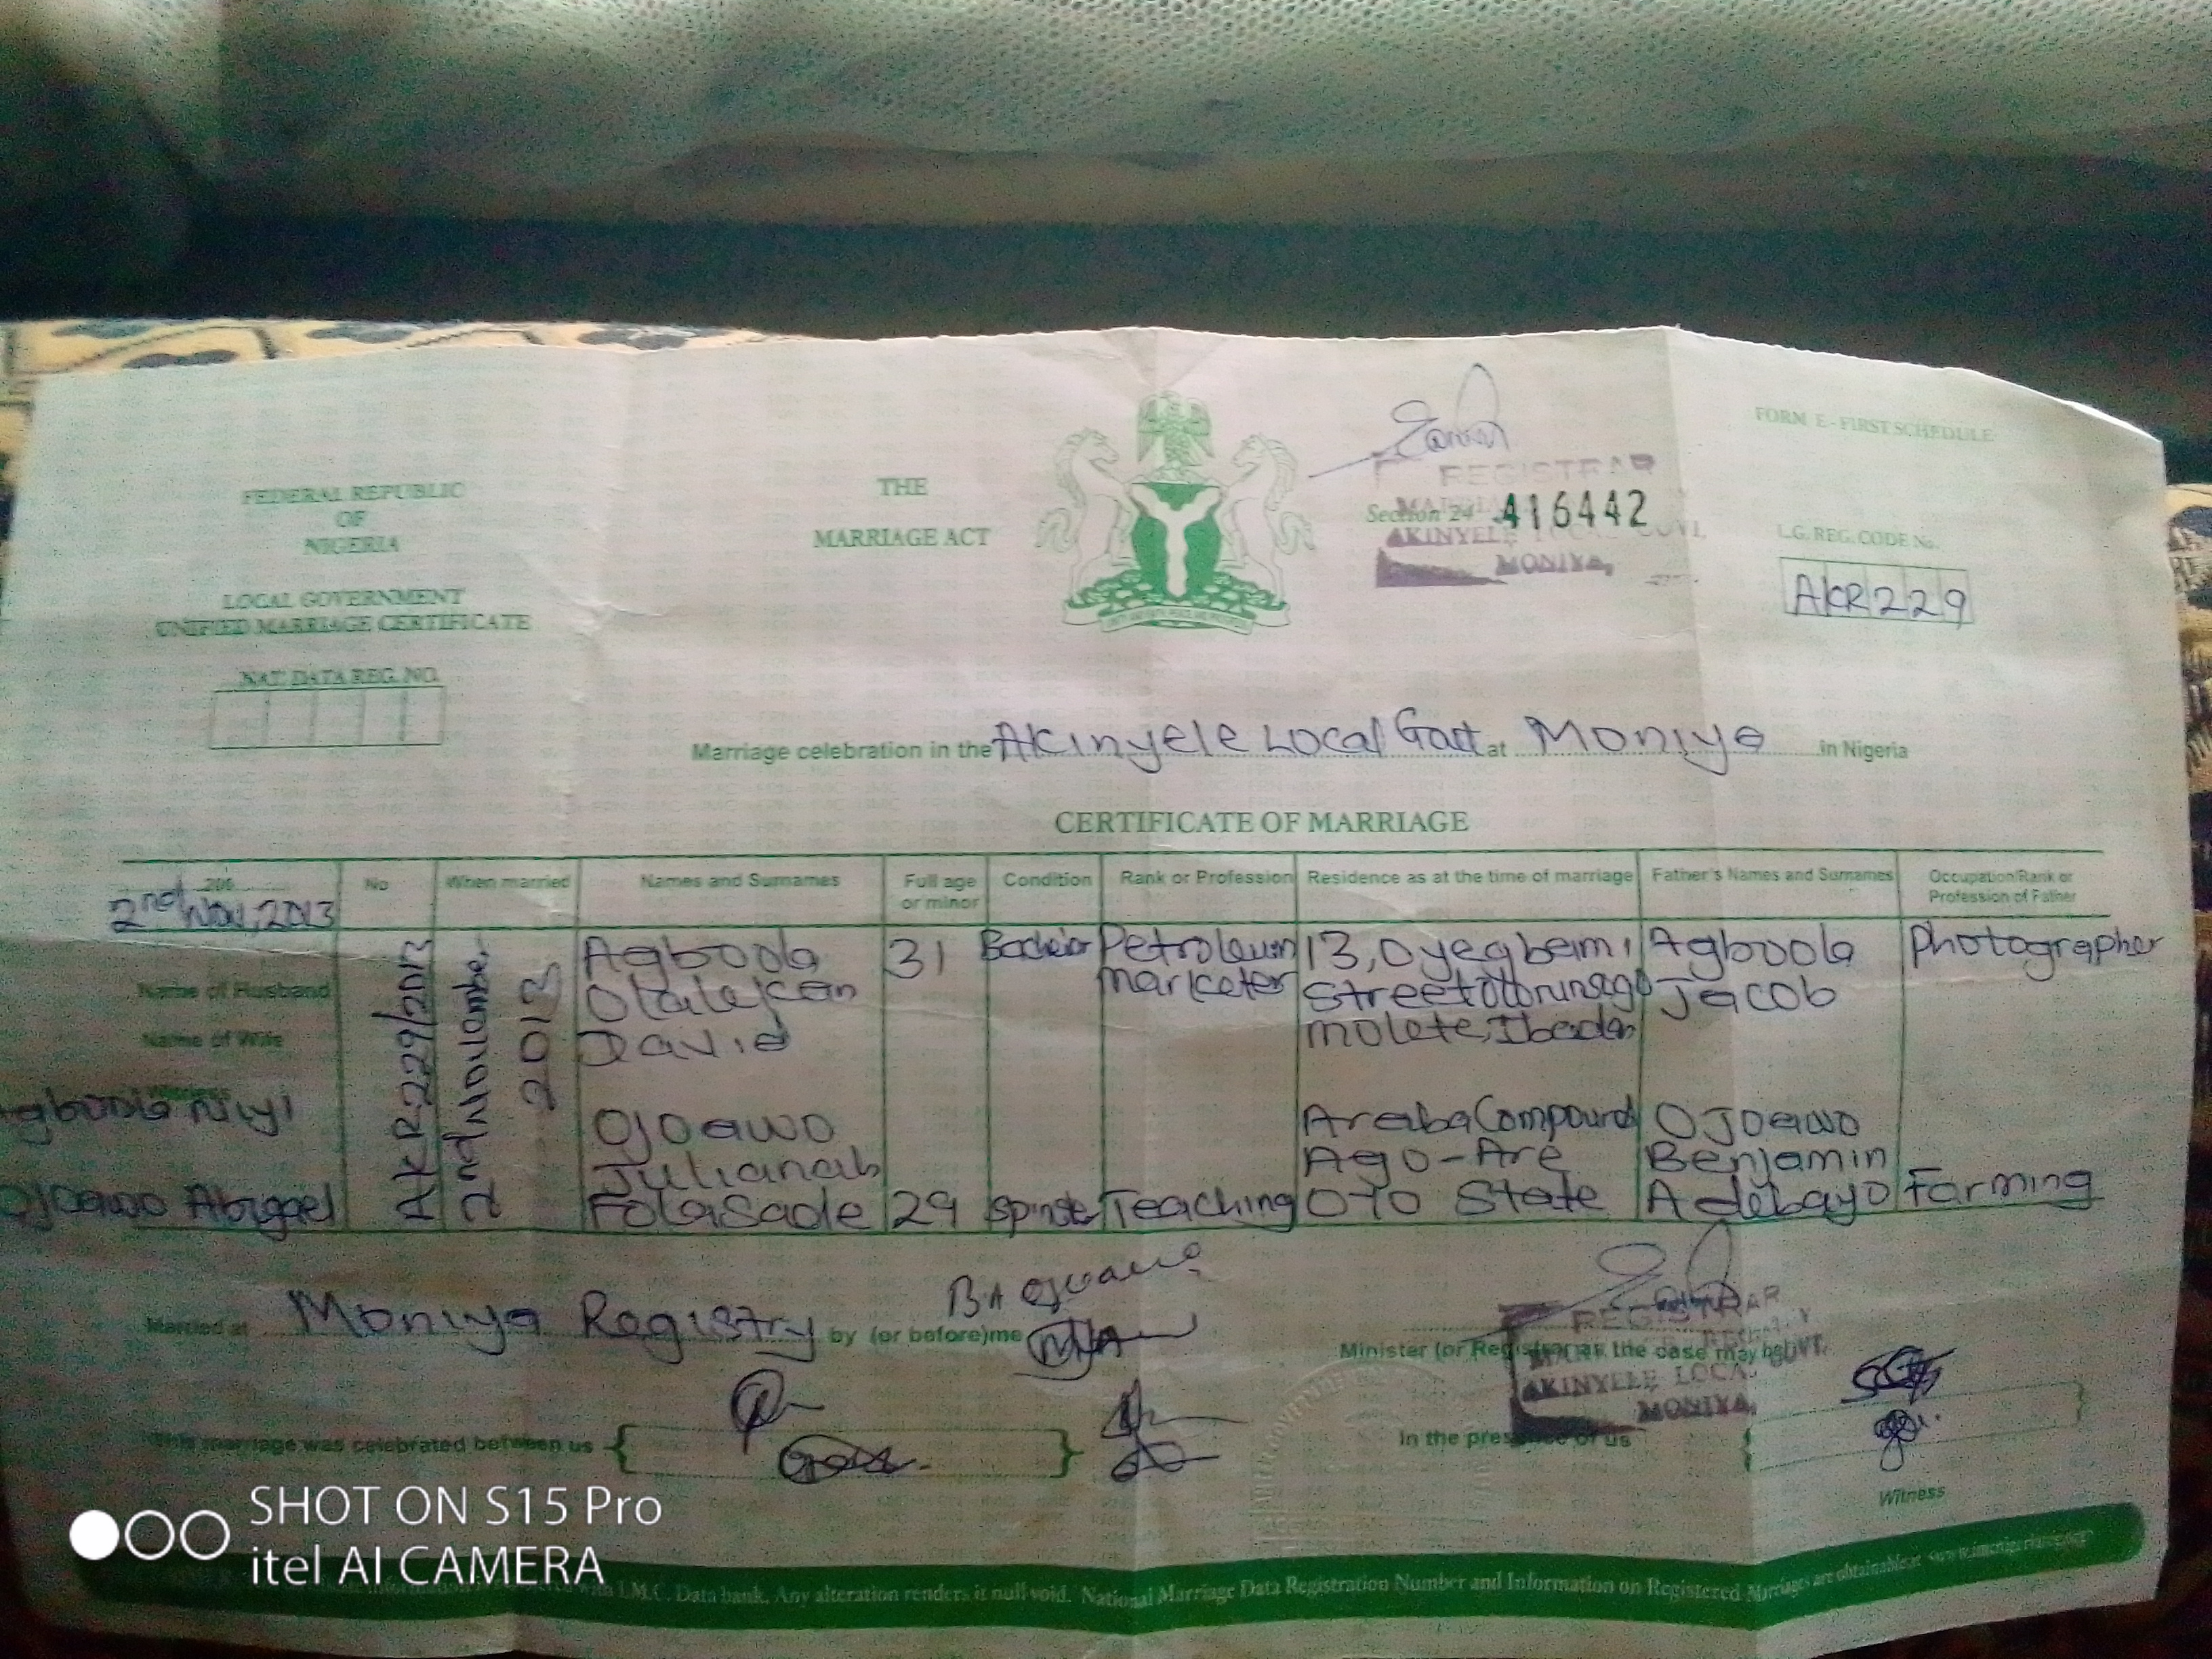 FORM E - FIRST SCHEDULE
FEDERAL REPUBLIC
OF
NIGERIA
LOCAL GOVERNMENT
UNIFIED MARRIAGE CERTIFICATE
NAT. DATA REG. NO.
THE
MARRIAGE ACT
REGISTRAR
Section 24 416442
AKINYELE LOCAL GOVT.
MONIYA,
L.G. REG. CODE No.
AKR229
Marriage celebration in the Akinyele Local Govt at Moniya in Nigeria
CERTIFICATE OF MARRIAGE
200 No When married Names and Surnames Full age or minor Condition Rank or Profession Residence as at the time of marriage Father's Names and Surnames Occupation/Rank or Profession of Father
2nd Nov, 2013
AKR229/2013
2nd November
2013
Name of Husband
Agboola
Olalekan
David
31 Bachelor Petroleum
marketer
13, Oyegbemi
Street
Molete, Ibadan
Agboola
Jacob
Photographer
Name of Wife
Witness
gboola Niyi
Ojoawo Abigael
Ojoawo
Julianah
Folasade 29 Spinster Teaching
Araba Compound
Ago-Are
OYO State
Ojoawo
Benjamin
Adebayo Farming
Married at Moniya Registry by (or before) me
Minister (or Registrar as the case may be)
REGISTRAR
AKINYELE LOCAL
MONIYA,
This marriage was celebrated between us
In the presence of us
Witness
SHOT ON S15 Pro
itel AI CAMERA
with I.M.C. Data bank. Any alteration renders it null void. National Marriage Data Registration Number and Information on Registered Marriages are obtainable at